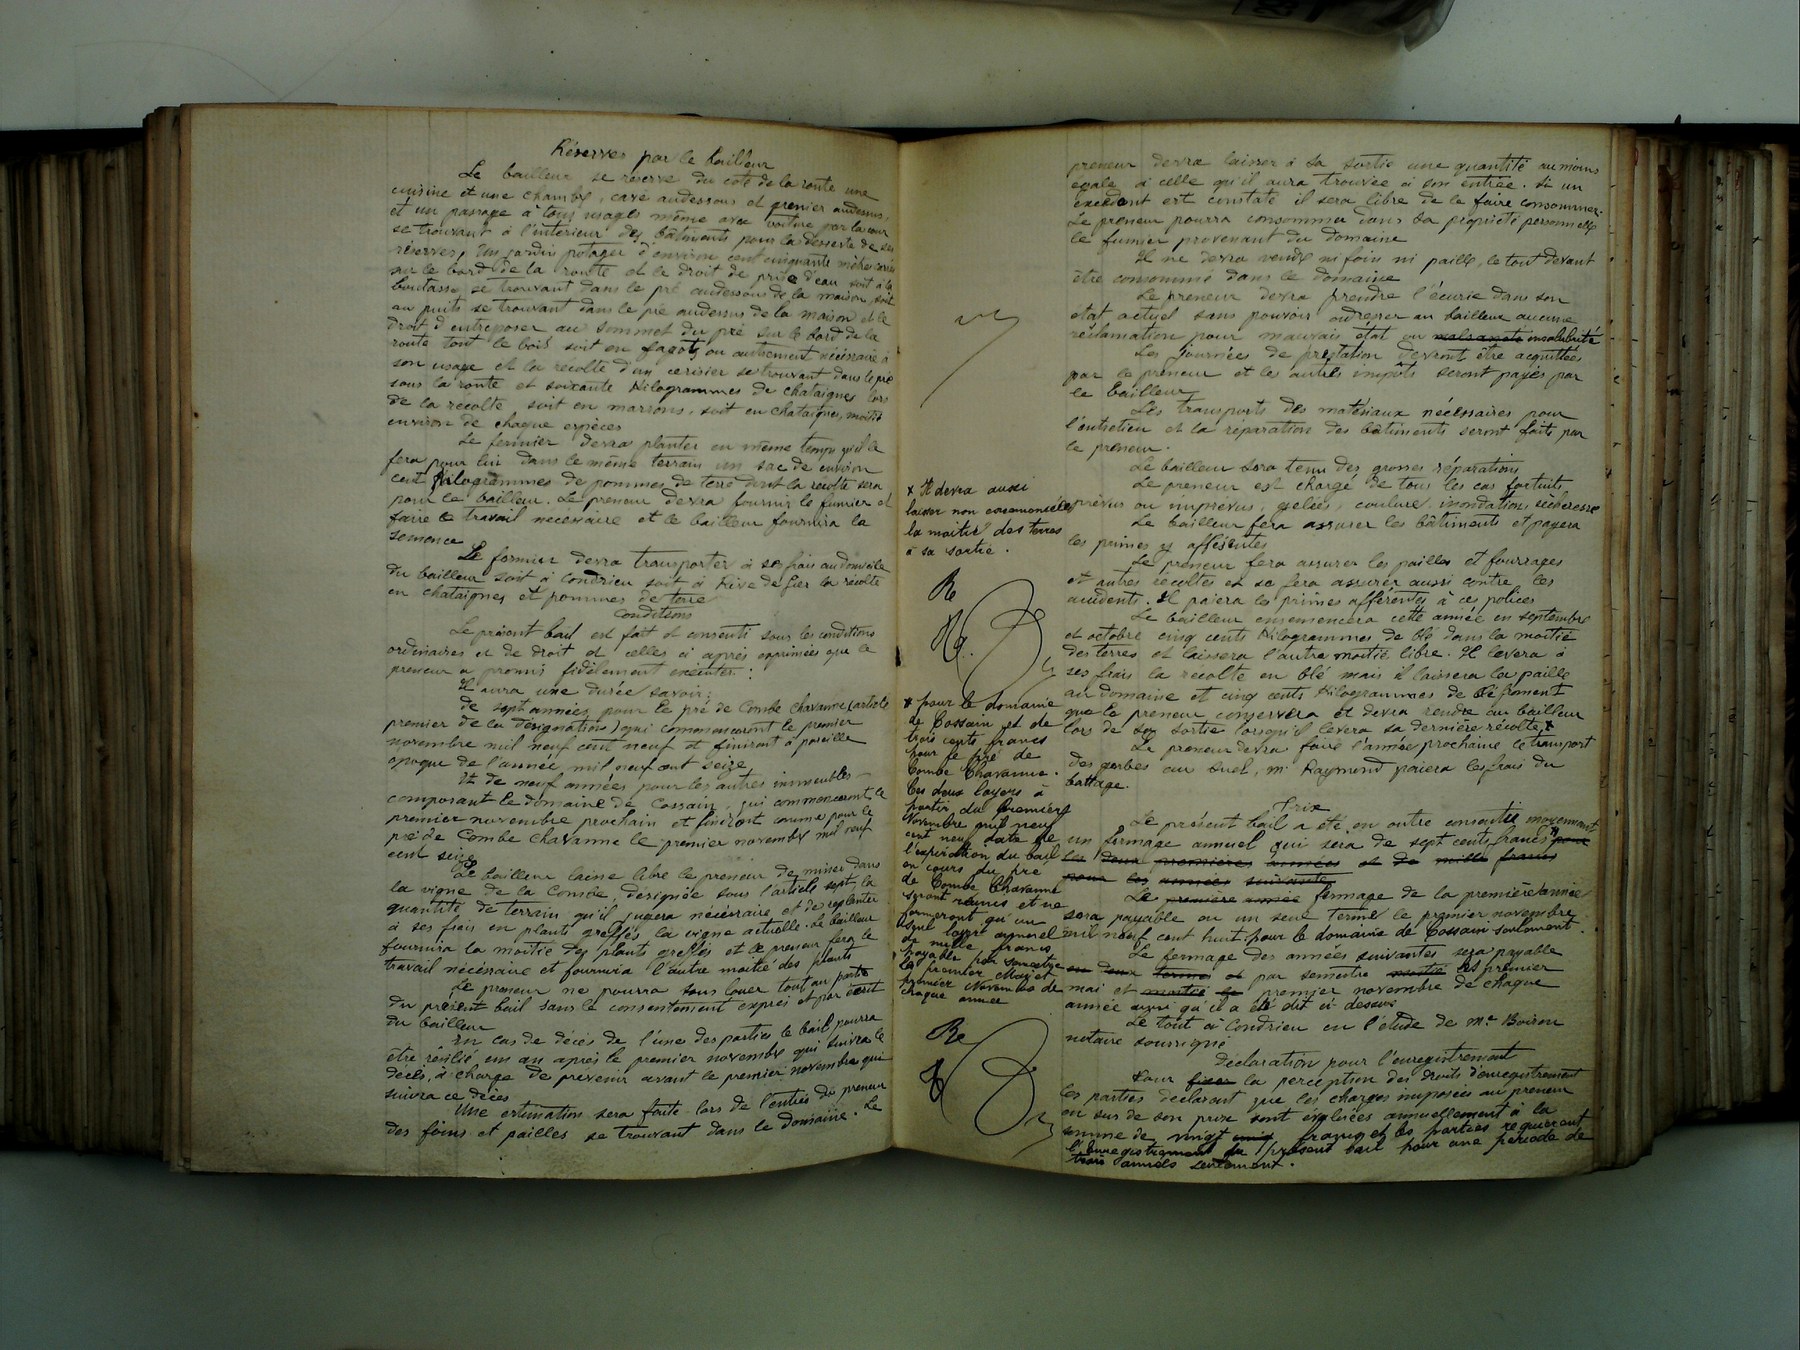 Réserves par le bailleur
Le bailleur se réserve du coté de la route une
cuisine et une chambre, cave audessous et grenier audessus,
et un passage à tous usages même avec voiture par la cour
se trouvant à l'intérieur des bâtiments pour la desserte de ses
réserves, un jardin potager d'environ cent cinquante mètres carrés
sur le bord de la route et le droit de prise d'eau soit à la
boutasse se trouvant dans le pré audessous de la maison, soit
au puits se trouvant dans le pré audessus de la maison et le
droit d'entreposer au sommet du pré sur le bord de la
route tout le bois soit en fagots ou autrement nécessaire à
son usage et la récolte d'un cerisier se trouvant dans le pré
sous la route et soixante kilogrammes de chataignes lors
de la récolte soit en marrons, soit en chataignes, moitié
environ de chaque espèces
Le fermier devra planter en même temps qu'il le
fera pour lui dans le même terrain un sac de environ
cent kilogrammes de pommes de terre dont la récolte sera
pour le bailleur. Le preneur devra fournir le fumier et
faire le travail nécessaire et le bailleur fournira la
semence
Le fermier devra transporter à ses frais au domicile
du bailleur soit à Condrieu soit à Rive de Gier la récolte
en chataignes et pommes de terre
Conditions
Le présent bail est fait et consenti sous les conditions
ordinaires et de droit et celles ci après exprimées que le
preneur a promis fidèlement exécuter :
Il aura une durée savoir :
de sept années pour le pré de Combe Chavanne (article
premier de la désignation) qui commenceront le premier
novembre mil neuf cent neuf et finiront à pareille
époque de l'année mil neuf cent seize
Et de neuf années pour les autres immeubles
composant le domaine de Cossain, qui commenceront le
premier novembre prochain et finiront comme pour le
pré de Combe Chavanne le premier novembre mil neuf
cent seize
Le bailleur laisse libre le preneur de miner dans
la vigne de la Combe, désignée sous l'article sept, la
quantité de terrain qu'il jugera nécessaire et de replanter
à ses frais en plant greffés la vigne actuelle. Le bailleur
fournira la moitié des plants greffés et le preneur fera le
travail nécessaire et fournira l'autre moitié des plants
Le preneur ne pourra sous louer tout ou partie
du présent bail sans le consentement exprès et par écrit
du bailleur
En cas de décès de l'une des parties le bail pourra
être résilié un an après le premier novembre qui suivra le
décès, à charge de prévenir avant le premier novembre qui
suivra ce décès
Une estimation sera faite lors de l'entrée du preneur
des foins et pailles se trouvant dans le domaine. Le
x Il devra aussi
laisser non ensemencées
la moitié des terres
à sa sortie.
x pour le domaine
de Cossain et de
trois cents francs
pour le pré de
Combe Chavanne.
Ces deux loyers à
partir du premier
Novembre mil neuf
cent neuf date de
l'expiration du bail
en cours du pré
de Combe Chavanne
seront réunis et ne
formeront qu'un
seul loyer annuel
de mille francs
payable par semestre
les premier Mai et
premier Novembre de
chaque année
preneur devra laisser à sa sortie une quantité au moins
égale à celle qu'il aura trouvée à son entrée. Si un
excédent est constaté il sera libre de le faire consommer.
Le preneur pourra consommer dans sa propriété personnelle
le fumier provenant du domaine
Il ne devra vendre ni foin ni paille, le tout devant
être consommé dans le domaine
Le preneur devra prendre l'écurie dans son
état actuel sans pouvoir adresser au bailleur aucune
réclamation pour mauvais état ou insalubrité
Les journées de prestation devront être acquittées
par le preneur et les autres impôts seront payés par
le bailleur
Les transports des matériaux nécessaires pour
l'entretien et la réparation des bâtiments seront faits par
le preneur.
Le bailleur sera tenu des grosses réparations
Le preneur est chargé de tous les cas fortuits,
prévus ou imprévus, gelées, coulure, inondations, sècheresse
Le bailleur fera assurer les bâtiments et payera
les primes y afférentes
Le preneur fera assurer les pailles et fourrages
et autres récoltes et se fera assurer aussi contre les
accidents. Il paiera les primes afférentes à ces polices
Le bailleur ensemencera cette année en septembre
et octobre cinq cents kilogrammes de blé dans la moitié
des terres et laissera l'autre moitié libre. Il lèvera à
ses frais la récolte en blé mais il laissera la paille
au domaine et cinq cents kilogrammes de blé froment
que le preneur conservera et devra rendre au bailleur
lors de sa sortie lorsqu'il lèvera sa dernière récolte x
Le preneur devra faire l'année prochaine le transport
des gerbes au suel, Mr Raymond paiera les frais du
battage.
Prix
Le présent bail a été en outre consenti moyennant
un fermage annuel qui sera de sept cents francs x pour
les deux premières années et de mille francs
pour les années suivantes
Le premiere année fermage de la première année
sera payable en un seul terme le premier novembre
mil neuf cent huit pour le domaine de Cossain seulement.
Le fermage des années suivantes sera payable
en deux termes et par semestre moitié les premier
mai et moitié le premier novembre de chaque
année ainsi qu'il a été dit ci dessus
Le tout à Condrieu en l'étude de Me Boiron
notaire soussigné
Déclaration pour l'enregistrement
Pour fixer la perception des droits d'enregistrement
les parties déclarent que les charges imposées au preneur
en sus de son prix sont évaluées annuellement à la
somme de vingt cinq francs et les parties requièrent
l'enregistrement du présent bail pour une période de
trois années seulement.